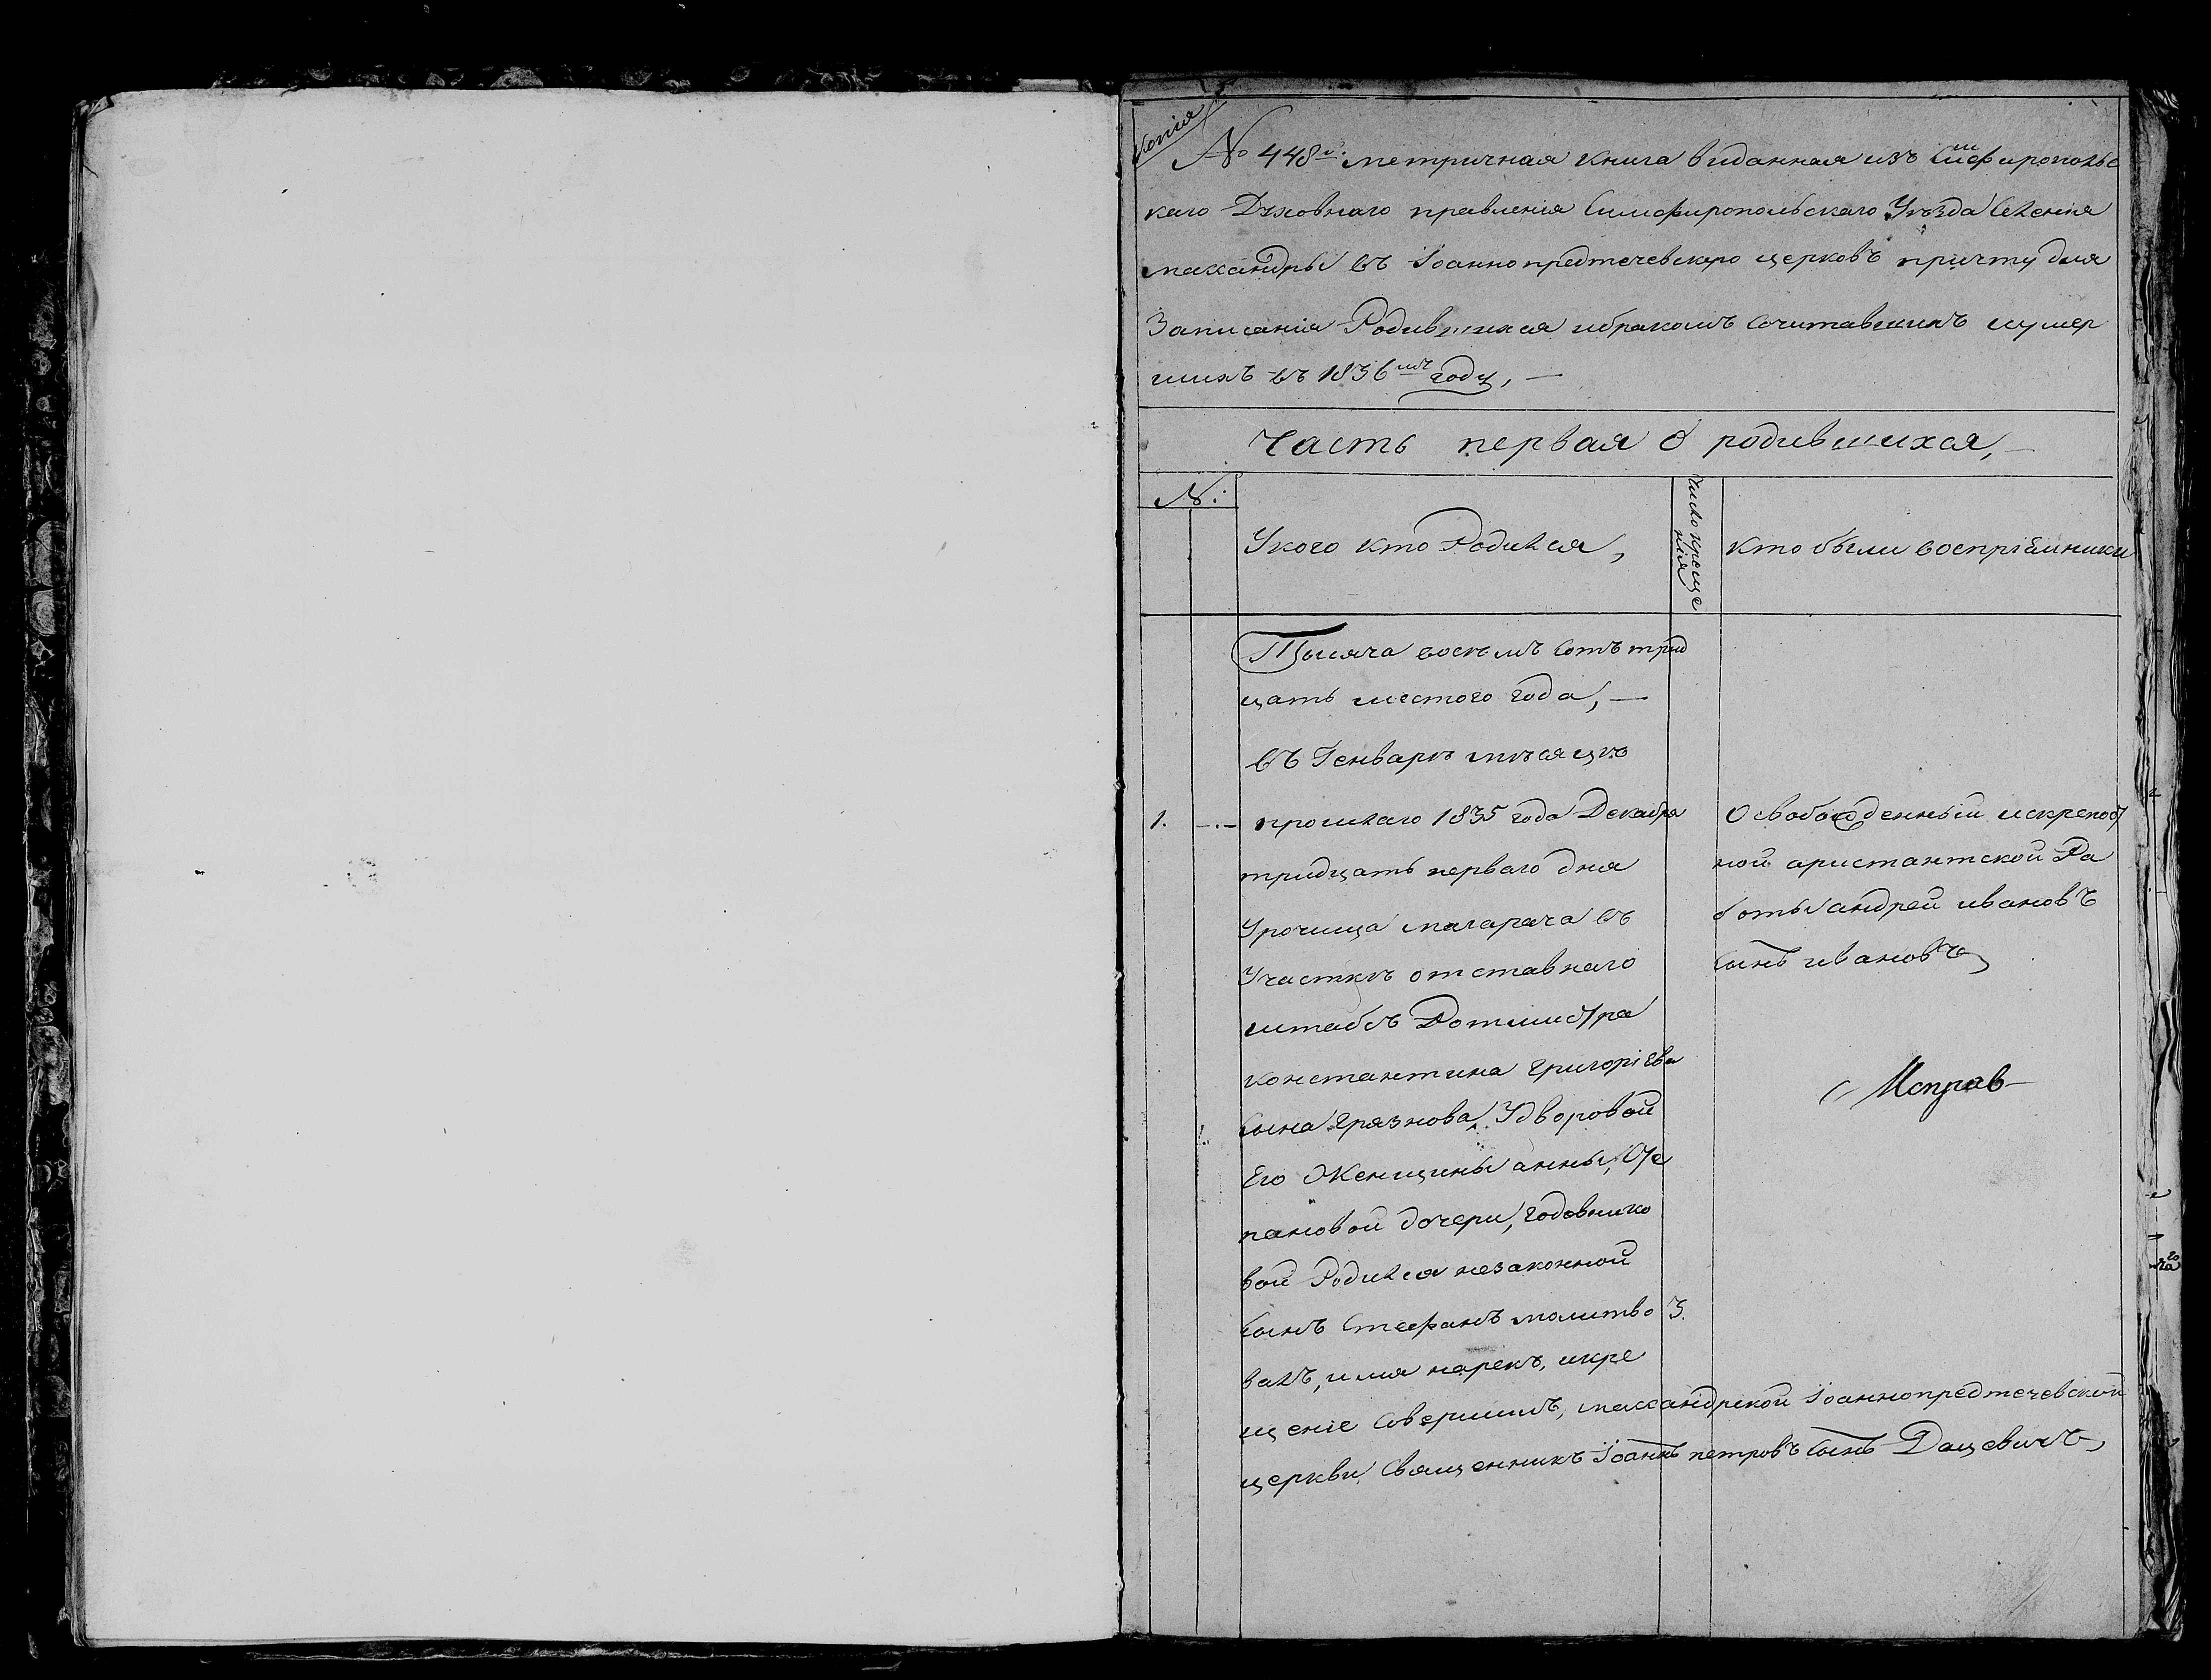 Копія
№ 448й. метричная книга виданная изъ Симфиропольс
каго Духовнаго правленія Симфиропольскаго Уѣзда Селенія
массандры въ Іоаннопредтечевскую церковъ причту для
Записанія Родившихся ибракомъ Сочитавшихъ иумер
шихъ въ 1836мъ году,—
Часть первая О родившихся,—
№:
Укого кто Родился,
Число креще
нія
кто были воспріємники
Тысяча восемъ Сотъ трид
цать шестого года,—
въ Генварѣ мѣсяцѣ
1. прошлаго 1835 года Декабря
тридцать перваго дня
Урочища магарача въ
Участкѣ отставнаго
штабсъ Ротмистра
константина григорієва
Сына грязнова, Удворовой
Его Женщины анны, Сте
пановой дочери,
вой Родился незаконной
Сынъ Стефанъ молитво 3.
валъ, имя нарекъ, икре
щеніе Совершилъ, массандрской Іоаннопредтечевской
церкви, Священникъ Іоаннъ петровъ Сынъ Дацевичъ,
Освобожденный искрепост
ной аристантской Ра
боты андрей ивановъ
Сынъ ивановъ,
Исправ